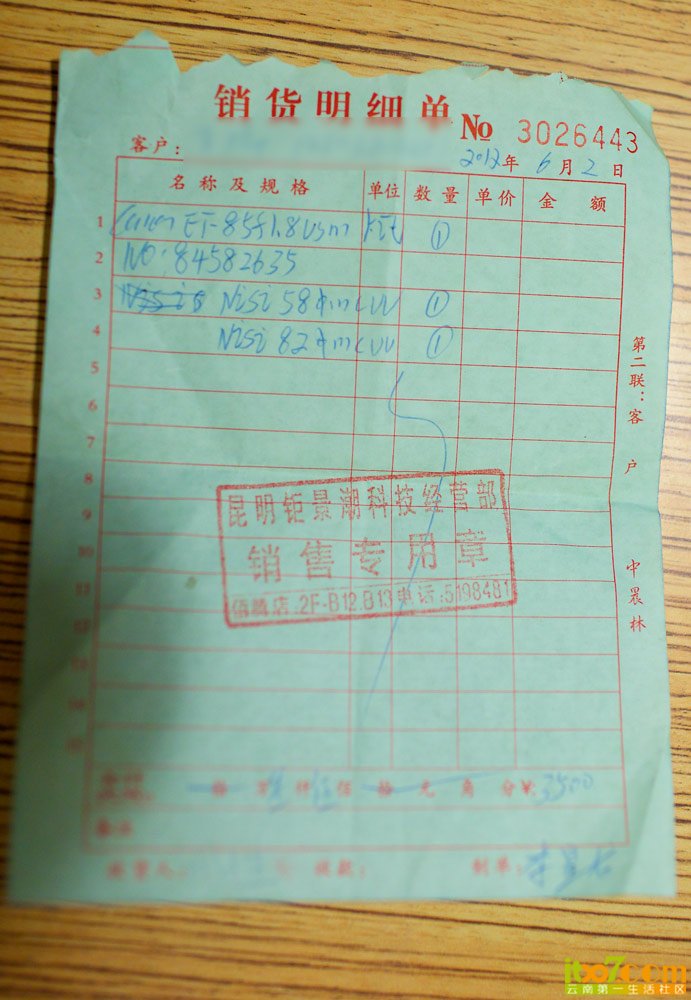 销货明细单
No 3026443
客户:
2012年 6月 2日
名称及规格 单位 数量 单价 金额
1 Canon EF 85f1.8USM ①
2 NO: 84582635
3 NiSi 58 mcUV ①
4 NiSi 82 mcUV ①
5
6
7
8
9
10
11
12
13
14
第二联:客户
中晨林
昆明钜景潮科技经营部
销售专用章
佰腾店:2F-B12.B13 电话:5198481
拾 万 仟 伍佰 拾 元 角 分 ¥:3500
制单:
ito07.com
云南第一生活社区